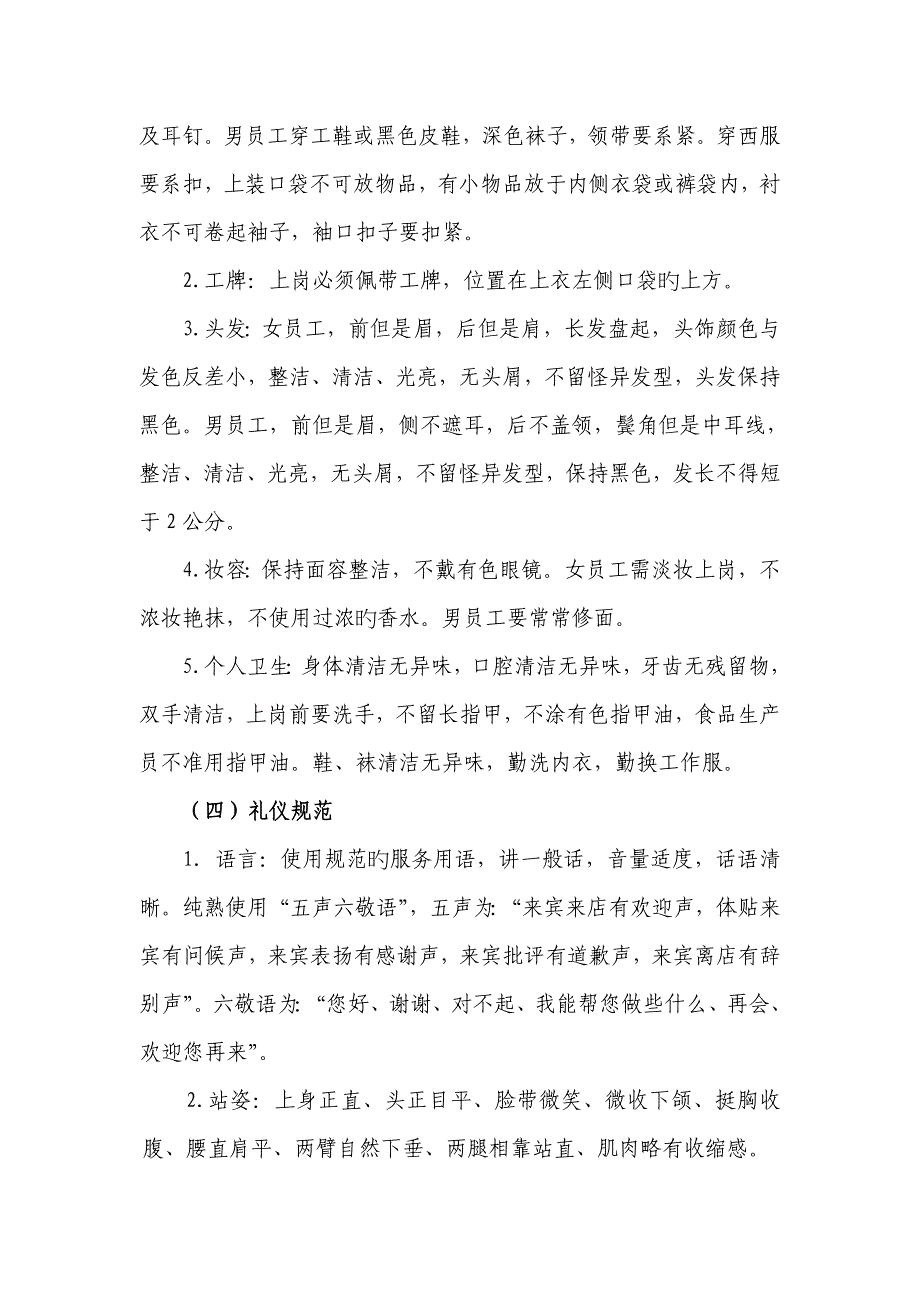 及耳钉。男员工穿工鞋或黑色皮鞋，深色袜子，领带要系紧。穿西服
要系扣，上装口袋不可放物品，有小物品放于内侧衣袋或裤袋内，衬
衣不可卷起袖子，袖口扣子要扣紧。
2.工牌：上岗必须佩带工牌，位置在上衣左侧口袋旳上方。
3.头发：女员工，前但是眉，后但是肩，长发盘起，头饰颜色与
发色反差小，整洁、清洁、光亮，无头屑，不留怪异发型，头发保持
黑色。男员工，前但是眉，侧不遮耳，后不盖领，鬓角但是中耳线，
整洁、清洁、光亮，无头屑，不留怪异发型，保持黑色，发长不得短
于 2 公分。
4.妆容：保持面容整洁，不戴有色眼镜。女员工需淡妆上岗，不
浓妆艳抹，不使用过浓旳香水。男员工要常常修面。
5.个人卫生：身体清洁无异味，口腔清洁无异味，牙齿无残留物，
双手清洁，上岗前要洗手，不留长指甲，不涂有色指甲油，食品生产
员不准用指甲油。鞋、袜清洁无异味，勤洗内衣，勤换工作服。
（四）礼仪规范
1. 语言：使用规范旳服务用语，讲一般话，音量适度，话语清
晰。纯熟使用“五声六敬语”，五声为：“来宾来店有欢迎声，体贴来
宾有问候声，来宾表扬有感谢声，来宾批评有道歉声，来宾离店有辞
别声”。六敬语为：“您好、谢谢、对不起、我能帮您做些什么、再会、
欢迎您再来”。
2.站姿：上身正直、头正目平、脸带微笑、微收下颌、挺胸收
腹、腰直肩平、两臂自然下垂、两腿相靠站直、肌肉略有收缩感。